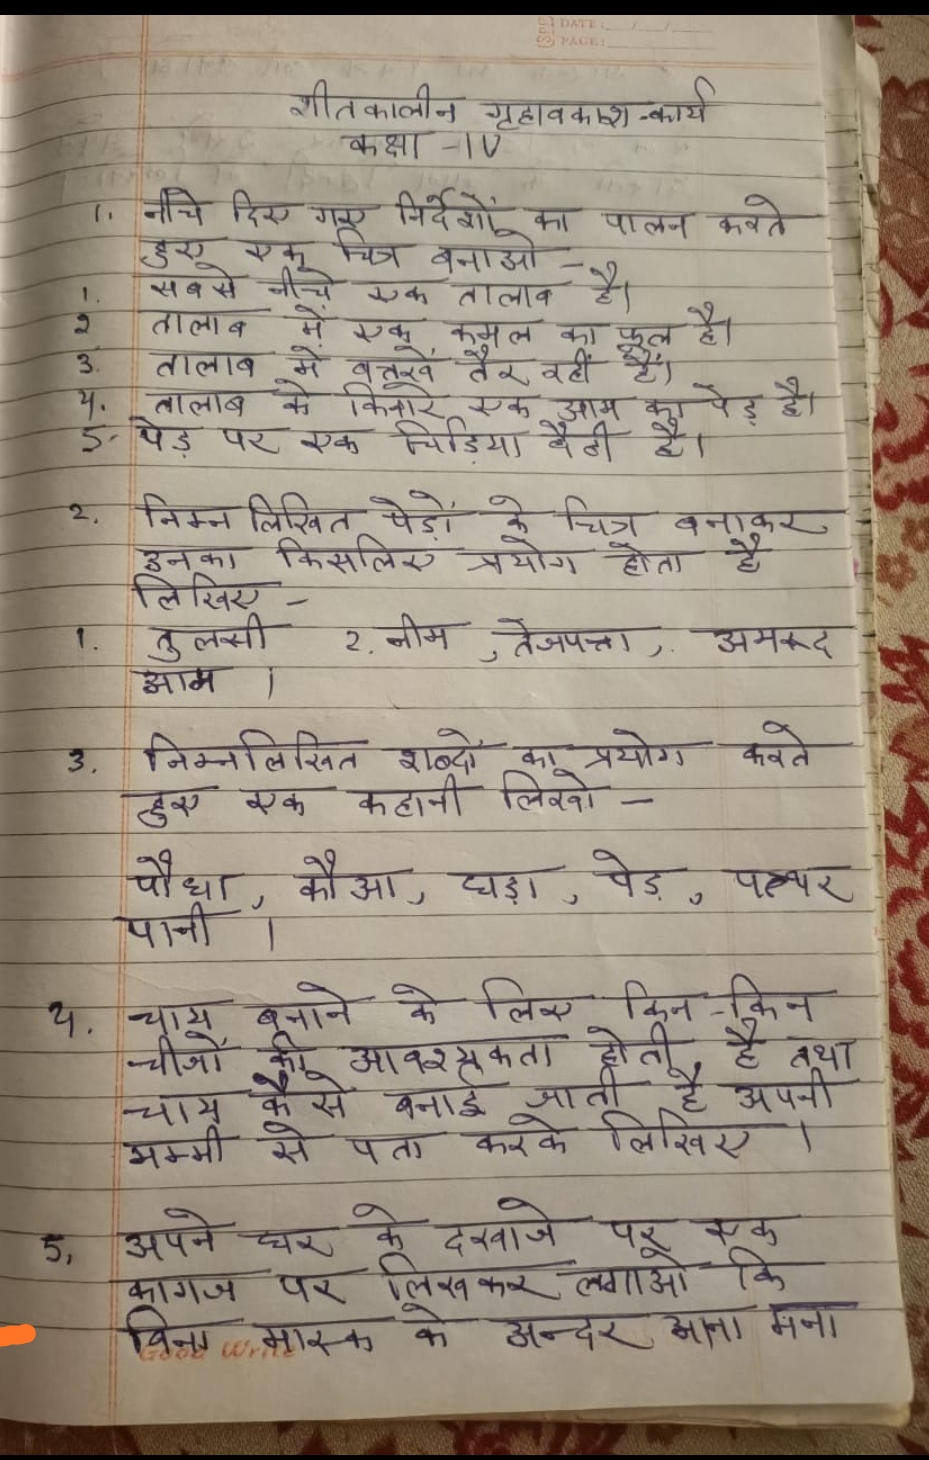 DATE:
PAGE:
शीतकालीन गृहावकाश-कार्य
कक्षा -IV
1. नीचे दिए गए निर्देशों का पालन करते
हुए एक चित्र बनाओ -
1. सबसे नीचे एक तालाब है।
2 तालाब में एक कमल का फूल है।
3. तालाब में बत्तखें तैर रहीं हैं।
4. तालाब के किनारे एक आम का पेड़ है।
5- पेड़ पर एक चिड़िया बैठी है।
2. निम्नलिखित पेड़ों के चित्र बनाकर
उनका किसलिए प्रयोग होता है
लिखिए -
1. तुलसी 2. नीम, तेजपत्ता, अमरूद
आम ।
3. निम्नलिखित शब्दों का प्रयोग करते
हुए एक कहानी लिखो -
पौधा, कौआ, घड़ा, पेड़, पत्थर
पानी ।
4. चाय बनाने के लिए किन-किन
चीजों की आवश्यकता होती है तथा
चाय कैसे बनाई जाती है अपनी
मम्मी से पता करके लिखिए ।
5. अपने घर के दरवाजे पर एक
कागज पर लिखकर लगाओ कि
बिना मास्क के अन्दर आना मना
Good Write